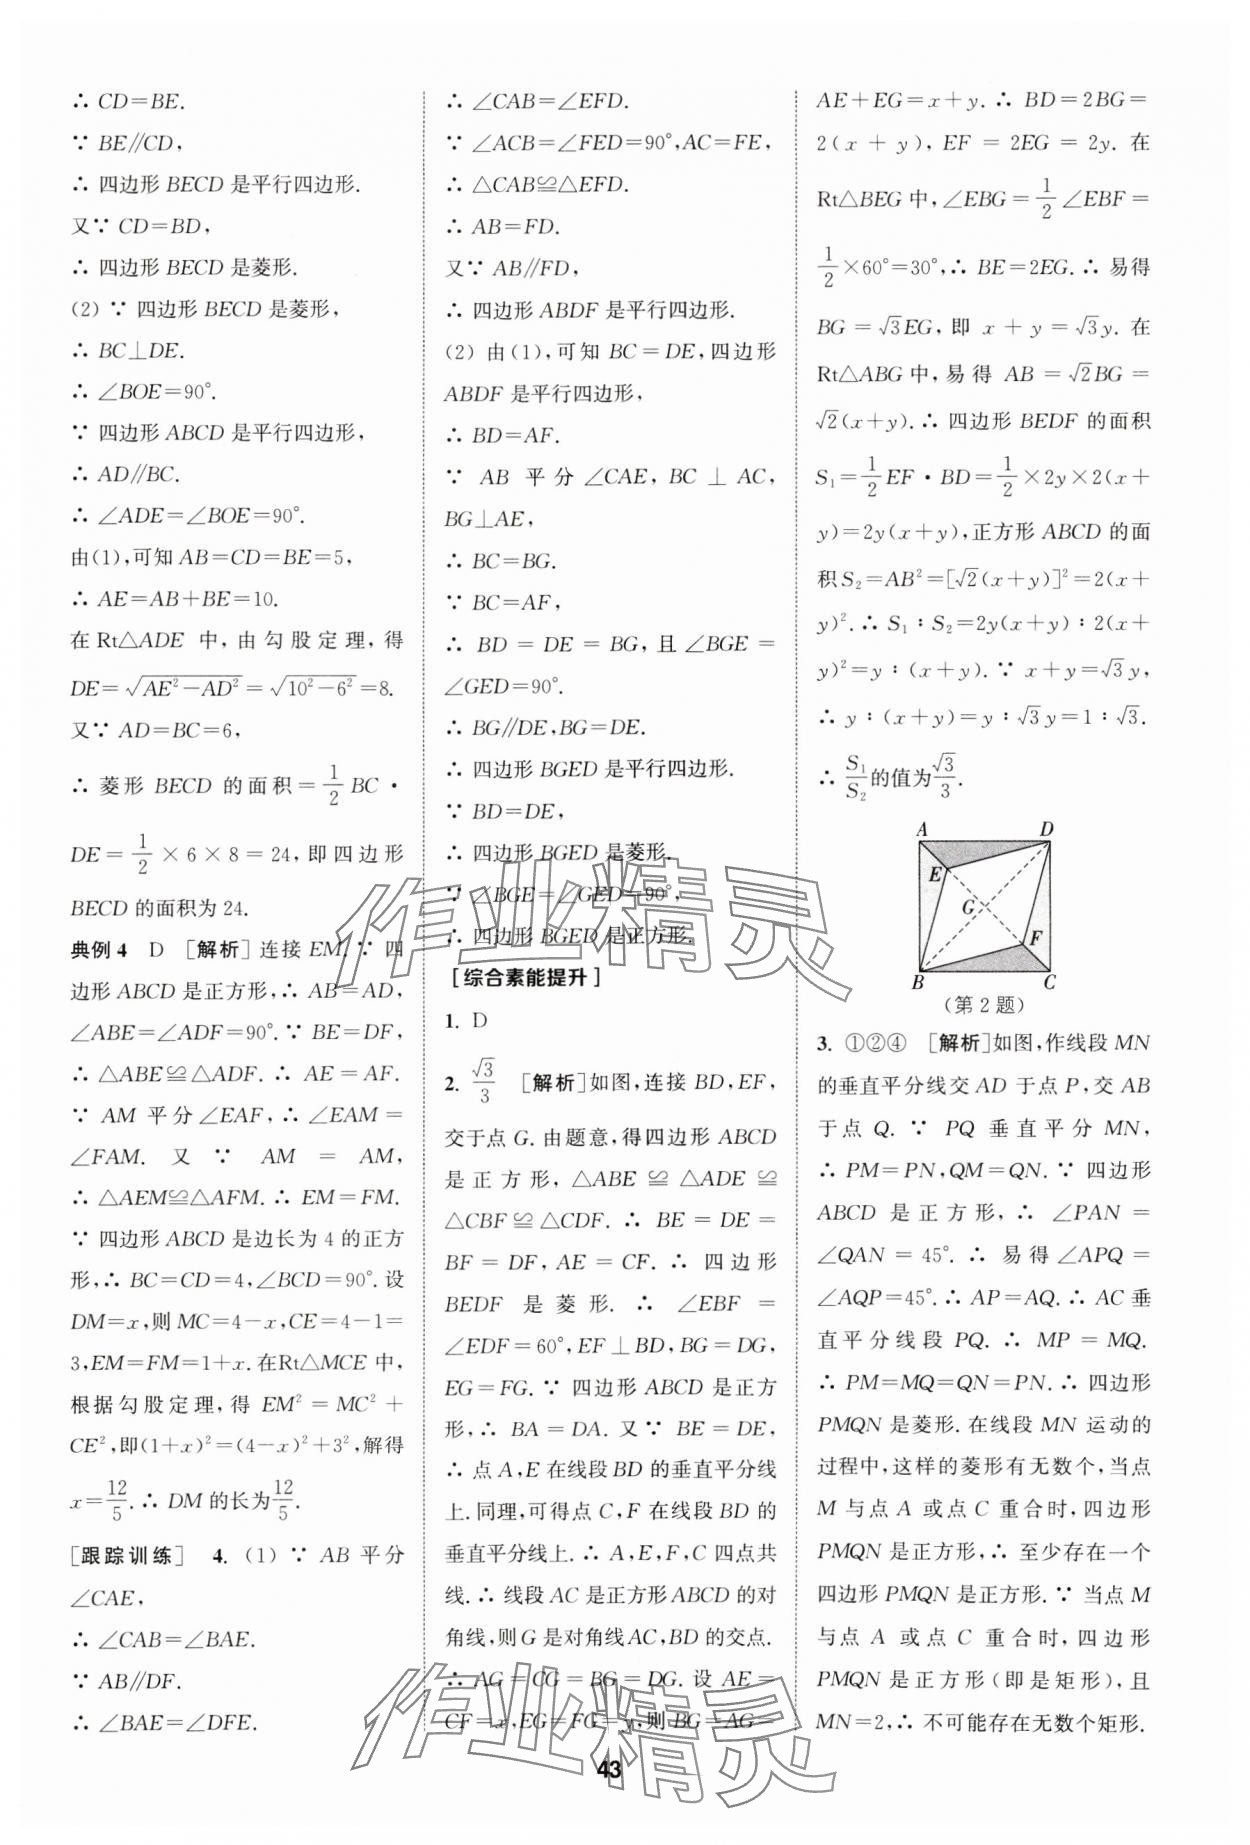 ∴ CD=BE.
∵ BE∥CD,
∴ 四边形 BECD 是平行四边形.
又∵ CD=BD,
∴ 四边形 BECD 是菱形.
(2) ∵ 四边形 BECD 是菱形,
∴ BC⊥DE.
∴ ∠BOE=90°.
∵ 四边形 ABCD 是平行四边形,
∴ AD∥BC.
∴ ∠ADE=∠BOE=90°.
由(1),可知 AB=CD=BE=5,
∴ AE=AB+BE=10.
在 Rt△ADE 中, 由 勾 股 定 理, 得
DE=√(AE²-AD²)=√(10²-6²)=8.
又∵ AD=BC=6,
∴ 菱形 BECD 的面积=1/2 BC·
DE=1/2×6×8=24,即四边形
BECD 的面积为 24.
典例 4 D [解析]连接 EM. ∵ 四
边形 ABCD 是正方形,∴ AB=AD,
∠ABE=∠ADF=90°. ∵ BE=DF,
∴ △ABE≌△ADF. ∴ AE=AF.
∵ AM 平分∠EAF,∴ ∠EAM=
∠FAM. 又 ∵ AM = AM,
∴ △AEM≌△AFM. ∴ EM=FM.
∵ 四边形 ABCD 是边长为 4 的正方
形,∴ BC=CD=4,∠BCD=90°. 设
DM=x,则 MC=4-x,CE=4-1=
3,EM=FM=1+x. 在Rt△MCE 中,
根据勾股定理,得 EM²=MC²+
CE²,即(1+x)²=(4-x)²+3²,解得
x=12/5. ∴ DM 的长为12/5.
[跟踪训练] 4. (1) ∵ AB 平分
∠CAE,
∴ ∠CAB=∠BAE.
∵ AB∥DF.
∴ ∠BAE=∠DFE.
∴ ∠CAB=∠EFD.
∵ ∠ACB=∠FED=90°,AC=FE,
∴ △CAB≌△EFD.
∴ AB=FD.
又∵ AB∥FD,
∴ 四边形 ABDF 是平行四边形.
(2) 由(1),可知 BC=DE,四边形
ABDF 是平行四边形,
∴ BD=AF.
∵ AB 平分∠CAE, BC⊥AC,
BG⊥AE,
∴ BC=BG.
∵ BC=AF,
∴ BD=DE=BG,且∠BGE=
∠GED=90°.
∴ BG∥DE,BG=DE.
∴ 四边形 BGED 是平行四边形.
∵ BD=DE,
∴ 四边形 BGED 是菱形.
∵ ∠BGE=∠GED=90°,
∴ 四边形 BGED 是正方形.
[综合素能提升]
1. D
2. √3/3 [解析]如图,连接 BD,EF,
交于点 G. 由题意,得四边形 ABCD
是正方形,△ABE≌△ADE≌
△CBF≌△CDF. ∴ BE=DE=
BF=DF,AE=CF. ∴ 四边形
BEDF 是菱形. ∴ ∠EBF=
∠EDF=60°,EF⊥BD,BG=DG,
EG=FG. ∵ 四边形 ABCD 是正方
形,∴ BA=DA. 又∵ BE=DE,
∴ 点 A,E 在线段 BD 的垂直平分线
上. 同理,可得点 C,F 在线段 BD 的
垂直平分线上. ∴ A,E,F,C 四点共
线. ∴ 线段 AC 是正方形 ABCD 的对
角线,则 G 是对角线 AC,BD 的交点.
∴ AG=CG=BG=DG. 设 AE=
CF=x,EG=FG=y,则 BG=AG=
AE+EG=x+y. ∴ BD=2BG=
2(x+y), EF=2EG=2y. 在
Rt△BEG 中,∠EBG=1/2∠EBF=
1/2×60°=30°,∴ BE=2EG. ∴ 易得
BG=√3EG,即 x+y=√3y. 在
Rt△ABG 中,易得 AB=√2BG=
√2(x+y). ∴ 四边形 BEDF 的面积
S₁=1/2EF·BD=1/2×2y×2(x+
y)=2y(x+y),正方形 ABCD 的面
积S₂=AB²=[√2(x+y)]²=2(x+
y)². ∴ S₁∶S₂=2y(x+y)∶2(x+
y)²=y∶(x+y). ∵ x+y=√3y,
∴ y∶(x+y)=y∶√3y=1∶√3.
∴ S₁/S₂的值为√3/3.
A D
E
G
F
B C
(第 2 题)
3. ①②④ [解析]如图,作线段 MN
的垂直平分线交 AD 于点 P,交 AB
于点 Q. ∵ PQ 垂直平分 MN,
∴ PM=PN,QM=QN. ∵ 四边形
ABCD 是正方形,∴ ∠PAN=
∠QAN=45°. ∴ 易得∠APQ=
∠AQP=45°. ∴ AP=AQ. ∴ AC 垂
直平分线段 PQ. ∴ MP=MQ.
∴ PM=MQ=QN=PN. ∴ 四边形
PMQN 是菱形. 在线段 MN 运动的
过程中,这样的菱形有无数个,当点
M 与点 A 或点 C 重合时,四边形
PMQN 是正方形,∴ 至少存在一个
四边形 PMQN 是正方形. ∵ 当点 M
与点 A 或点 C 重合时,四边形
PMQN 是正方形(即是矩形),且
MN=2,∴ 不可能存在无数个矩形.
43
作业精灵
作业精灵